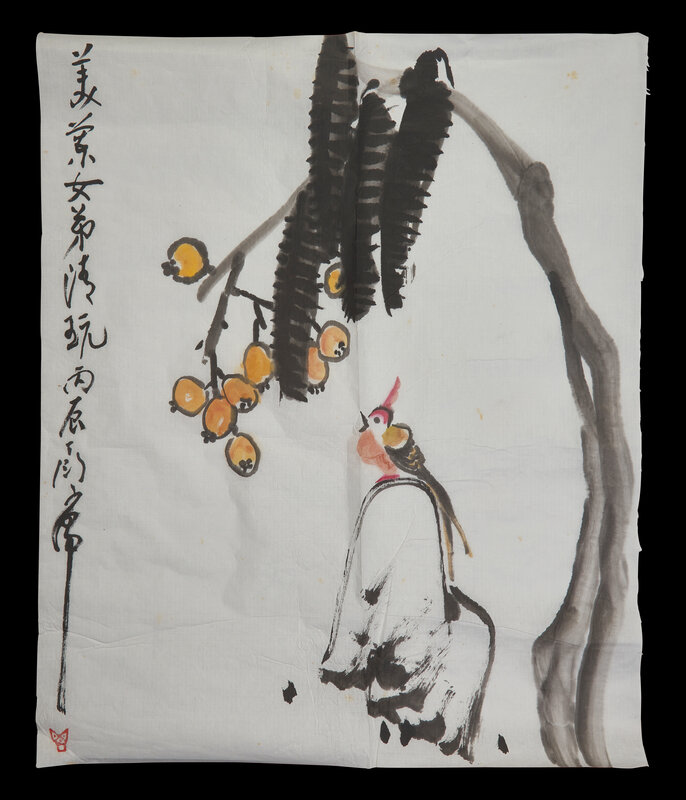 美女弟清玩丙辰丁衍庸